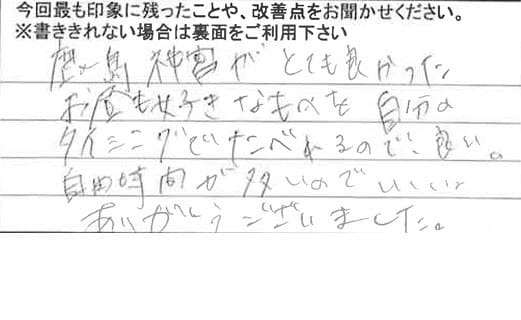 今回最も印象に残ったことや、改善点をお聞かせください。
※書ききれない場合は裏面をご利用下さい
鹿島神宮がとても良かった
お昼も好きなものを自分の
タイミングでたべれるので、良い。
自由時間が多いのでいい。
ありがとうございました。